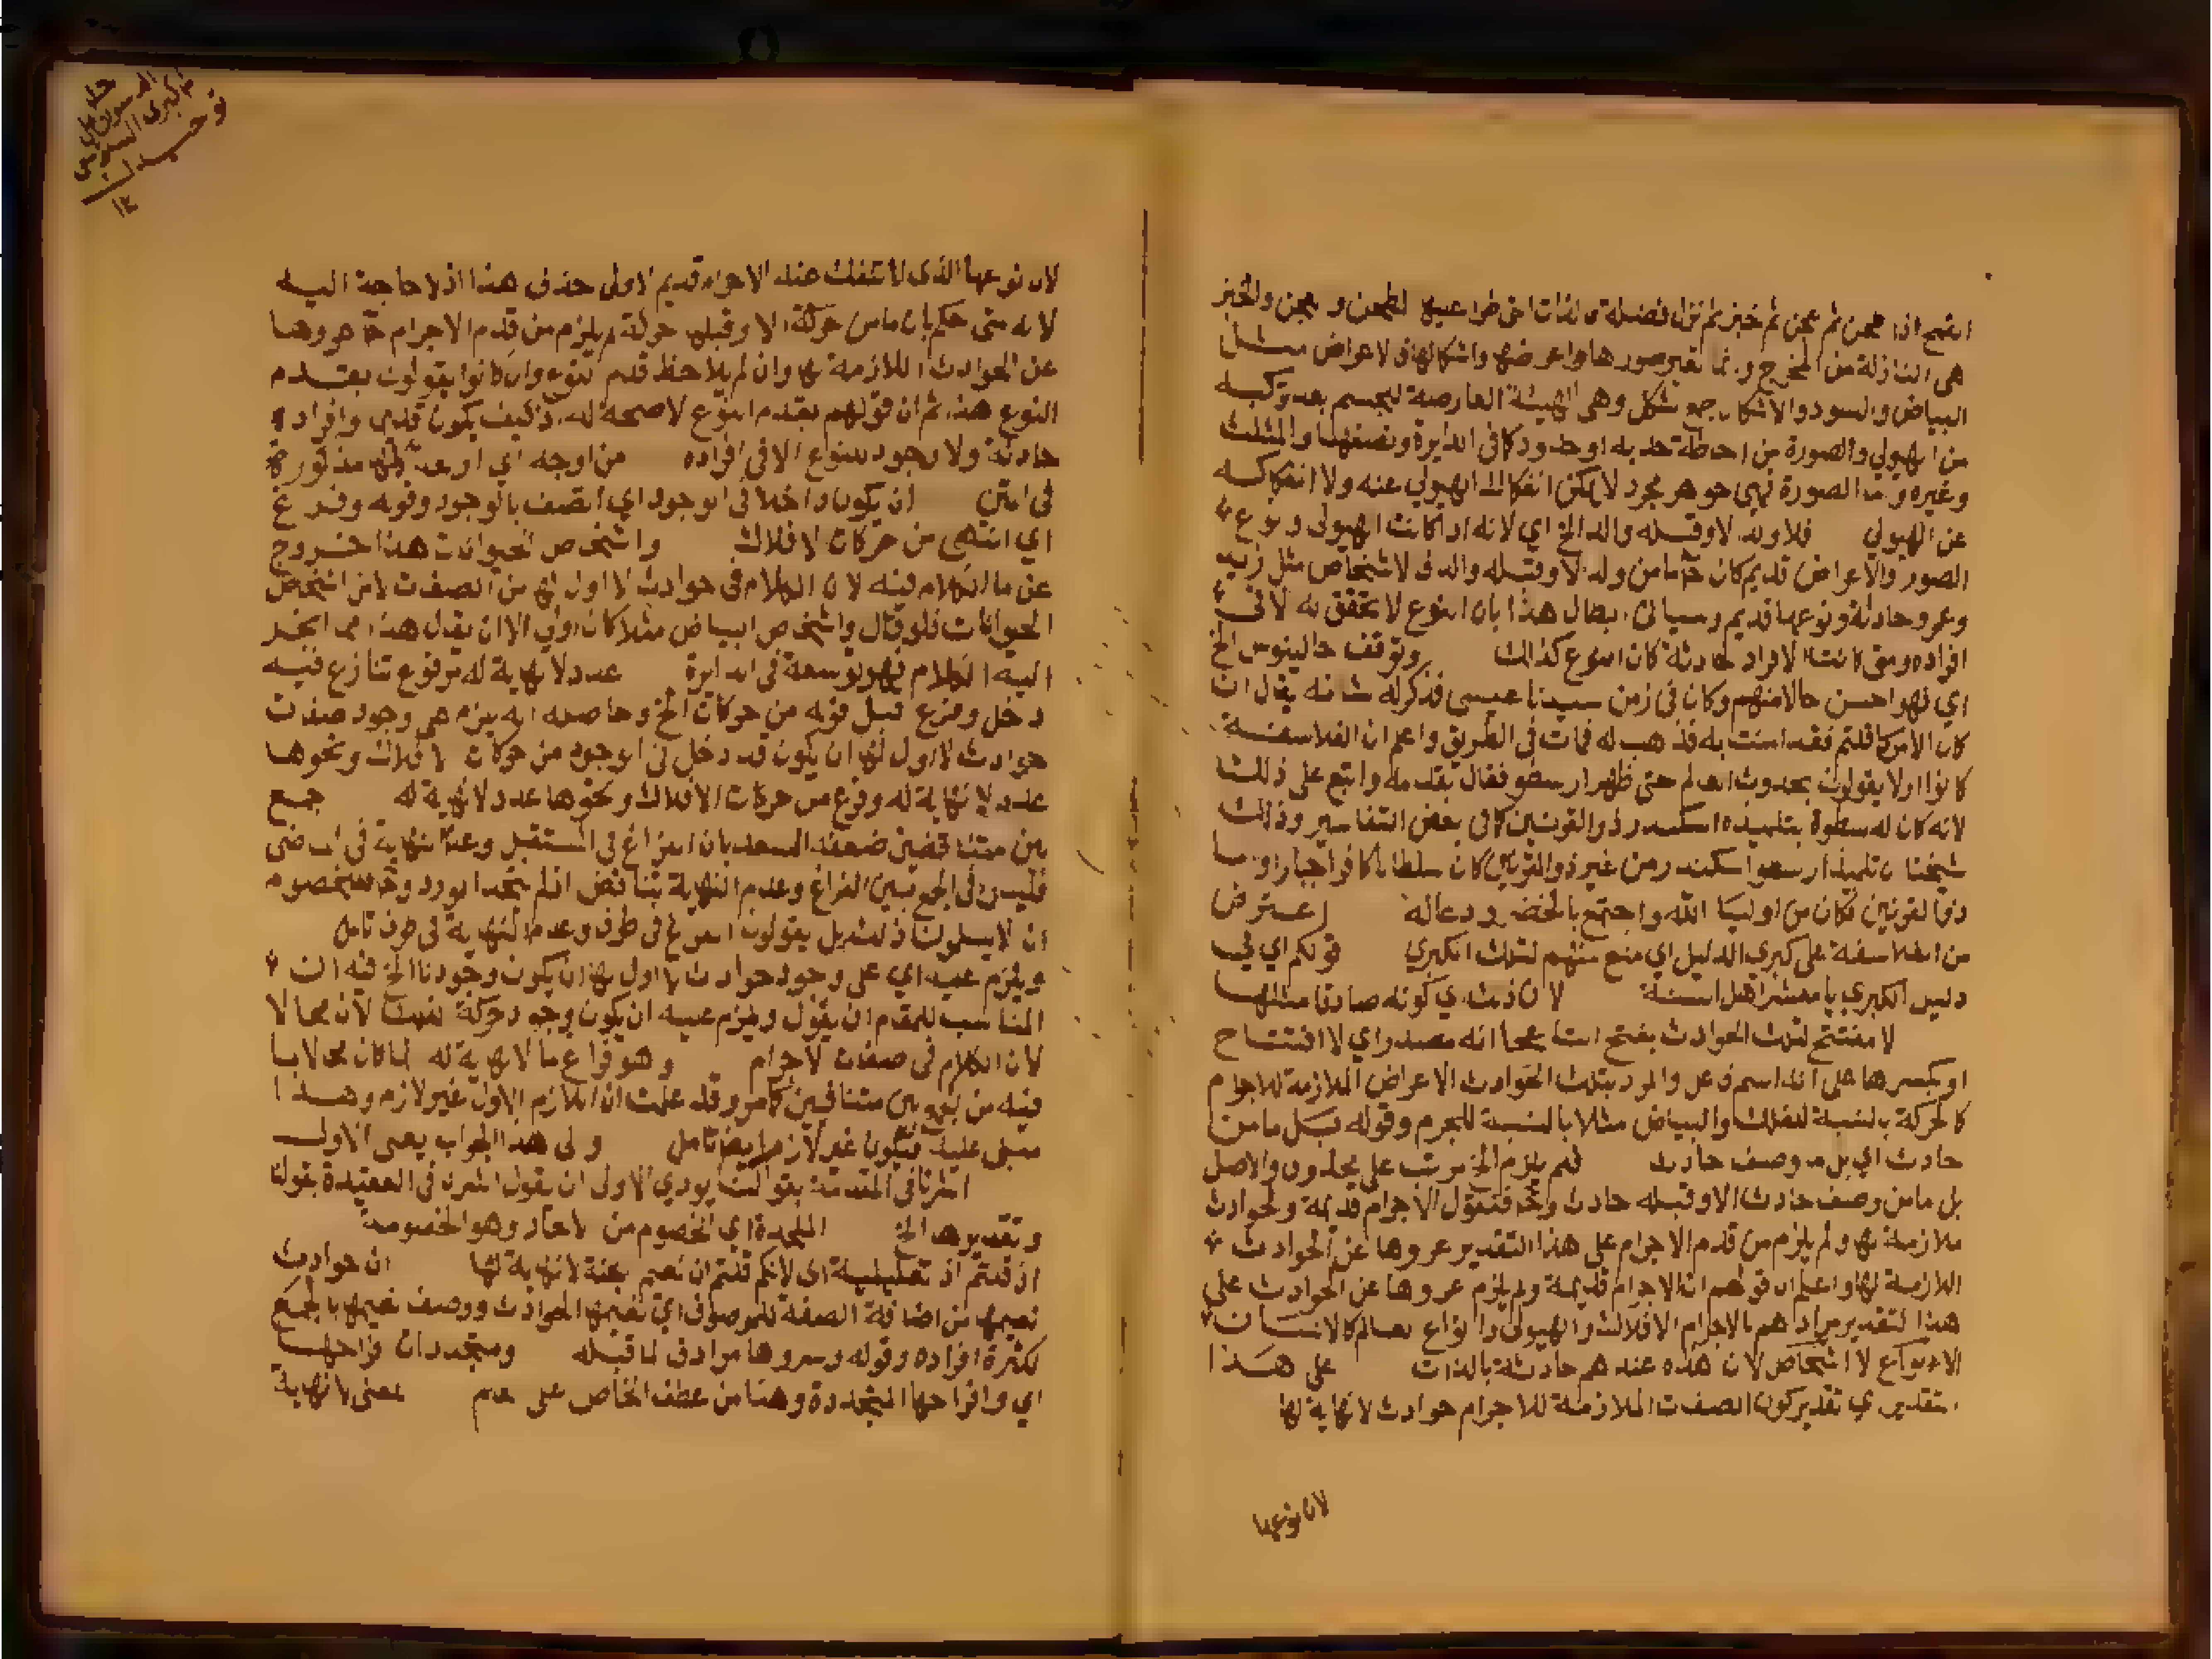 القمح اذا طحن ثم عجن ثم خبز ثم نزل فضلة والذات اخرى طرا عليها الطحن والعجن والخبز
هي النازلة من المخرج وانما تغير صورها واعراضها واشكالها فالاعراض مثل
البياض والسواد والاشكال جمع شكل وهي الهيئة العارضة للجسم بعد تركبه
من الهيولي والصورة من احاطة حد به او حدود كما في الدايرة ونصفها والمثلث
وغيره واما الصورة فهي جوهر مجرد لا يمكن انفكاك الهيولي عنه ولا انفكاكه
عن الهيولي فلا ولد الا وقبله والد الخ اي لانه اذا كانت الهيولى ونوع
الصور والاعراض قديم كان ما من ولد الا وقبله والد فالاشخاص مثل زيد
وعمرو حادثة ونوعها قديم وسياتي ابطال هذا بان النوع لا تحقق له الا في
افراده ومتى كانت الافراد حادثة كان النوع كذلك وتوقف جالينوس الخ
اي فهو احسن حالا منهم وكان في زمن سيدنا عيسى فذكر له شانه فقال ان
كان الامر كما قلتم فقد امنت به فذهب له فمات في الطريق واعلم ان الفلاسفة
كانوا اولا يقولون بحدوث العالم حتى ظهر ارسطو فقال بقدمه واتبع على ذلك
لانه كان له سطوة بتلميذه اسكندر ذو القرنين كما في بعض التفاسير وذلك
شيخنا ان تلميذ ارسطو اسكندر من غير ذو القرنين كان سلطانا كافرا جبارا واما
ذو القرنين فكان من اوليا الله واجتمع بالخضر ودعا له اعترض
من الفلاسفة على كبرى الدليل اي منع منهم لتلك الكبرى قولكم اي في
دليل الكبرى يا معشر اهل السنة لان ذلك اي كونه صادقا مثلها
لا مفتتح لتلك الحوادث بفتح التا على انه مصدر اي لا افتتاح
او بكسرها على انه اسم فاعل والمراد بتلك الحوادث الاعراض الملازمة للاجرام
كالحركة بالنسبة للفلك والبياض مثلا بالنسبة للجرم وقوله بل ما من
حادث اي بل ما وصف حادث فلم يلزم الخ مرتب على محذوف والاصل
بل ما من وصف حادث الا وقبله حادث وح فتقول الاجرام قديمة والحوادث
ملازمة لها ولم يلزم من قدم الاجرام على هذا التقدير عروها عن الحوادث
اللازمة لها واعلم ان قولهم ان الاجرام قديمة ولم يلزم عروها عن الحوادث على
هذا التقدير مرادهم بالاجرام الافلاك والهيولى وانواع العالم كالانسان
الانواع لا اشخاص لان هذه عندهم حادثة بالذات على هذا
التقدير اي تقدير كون الصفات الملازمة للاجرام حوادث لا نهاية لها
لان نوعها
لان نوعها الذي لا تنفك عنه الاجرام قديم الاولى حذف هذا اذ لا حاجة اليه
لانه متى حكم بان ما من حركة الا وقبلها حركة لم يلزم من قدم الاجرام عروها
عن الحوادث اللازمة لها وان لم يلاحظ قدم النوع وان كانوا يقولون بقدم
النوع هذا ثم ان قولهم بقدم النوع لا صحة له اذ كيف يكون قديم وافراده
حادثة ولا وجود للنوع الا في افراده من اوجه اي اربعة كلها مذكورة
في المتن ان يكون داخلا في الوجود اي اتصف بالوجود وقوله وفرغ
اي انتهى من حركات الافلاك واشخاص الحيوانات هذا خروج
عن ما الكلام فيه لان الكلام في حوادث لا اول لها من الصفات لا من اشخاص
الحيوانات فلو قال واشخاص البياض مثلا كان اولي الا ان يقال هذا مما انجر
اليه الكلام فهو توسعة في الدايرة عدد لا نهاية له مرفوع تنازع فيه
دخل وفرغ قبل قوله من حركات الخ وحاصله انه يلزم على وجود صفات
حوادث لا اول لها ان يكون قد دخل في الوجود من حركات الافلاك ونحوها
عدد لا نهاية له وفرغ من حركات الافلاك ونحوها عدد لا نهاية له جمع
بين متناقضين ضعفه السعد بان الفراغ في المستقبل وعدم النهاية في الماضي
فليس في الجمع بين الفراغ وعدم النهاية تناقض اذ لم يتحد المورد وح فللخصوم
ان لا يسلموا ذلك بل يقولون الفراغ في طرف وعدم النهاية في طرف تامل
ويلزم عليه اي على وجود حوادث لا اول لها ان يكون وجودنا الخ فيه ان
المناسب للمقام ان يقول ويلزم عليه ان يكون وجود حركة الفلك الان محالا
لان الكلام في صفات الاجرام وهو فراغ ما لا نهاية له لما كان محالا لما
فيه من الجمع بين متنافيين كما مر وقد علمت ان اللازم الاول غير لازم وهذا
مبني عليه فيكون غير لازم ايضا تامل والى هذا الجواب يعني الاول
اشرنا في المقدمة بقولنا يودي الاولى ان يقول اشرنا في العقيدة بقولنا
وتقديرها الخ الملحدة اي الخصوم من الالحاد وهو الخصومة
اذ قلتم اذ تعليلية اى لانكم قلتم ان نعيم الجنة لا نهاية لها ان حوادث
نعيمها من اضافة الصفة للموصوف اي نعيمها الحوادث ووصف نعيمها بالجمع
لكثرة افراده وقوله وسرورها مرادف لما قبله ومتجددات افراحها
اي وافراحها المتجددة وهذا من عطف الخاص على العام بمعنى لا نهاية